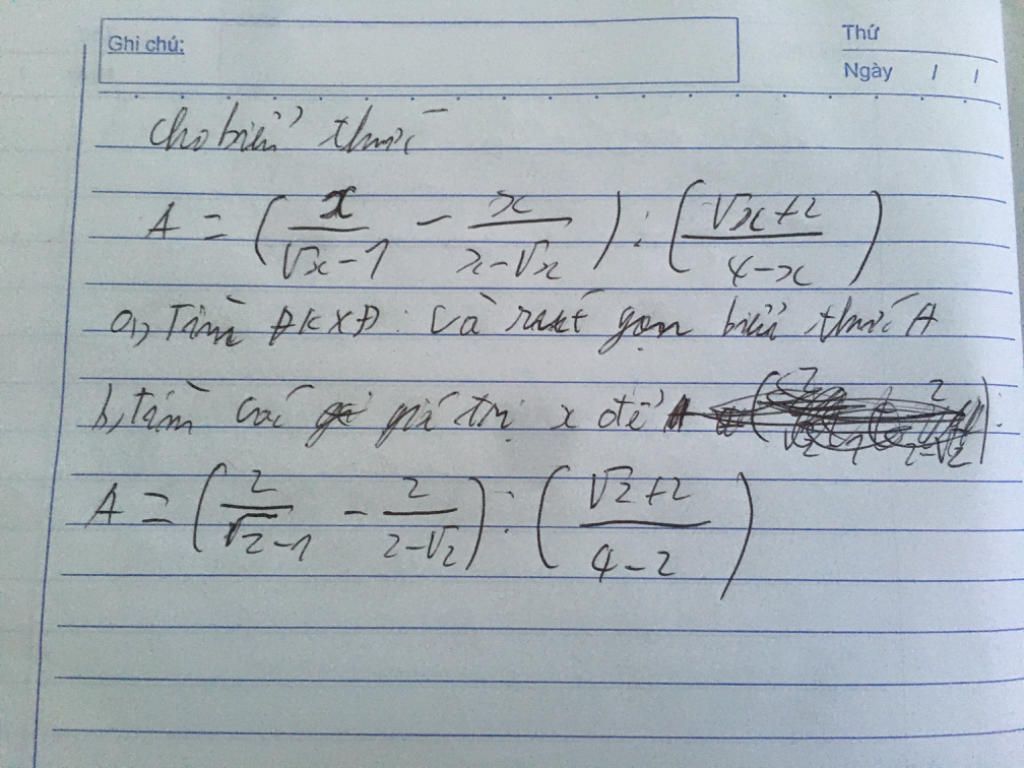 Ghi chú:
Thứ
Ngày / /
cho biểu thức
A = (x/(√x-1) - x/(x-√x)) : ((√x+2)/(4-x))
a, Tìm ĐKXĐ: và rút gọn biểu thức A
b, tìm các giá trị x để
A = (2/(√2-1) - 2/(2-√2)) : ((√2+2)/(4-2))